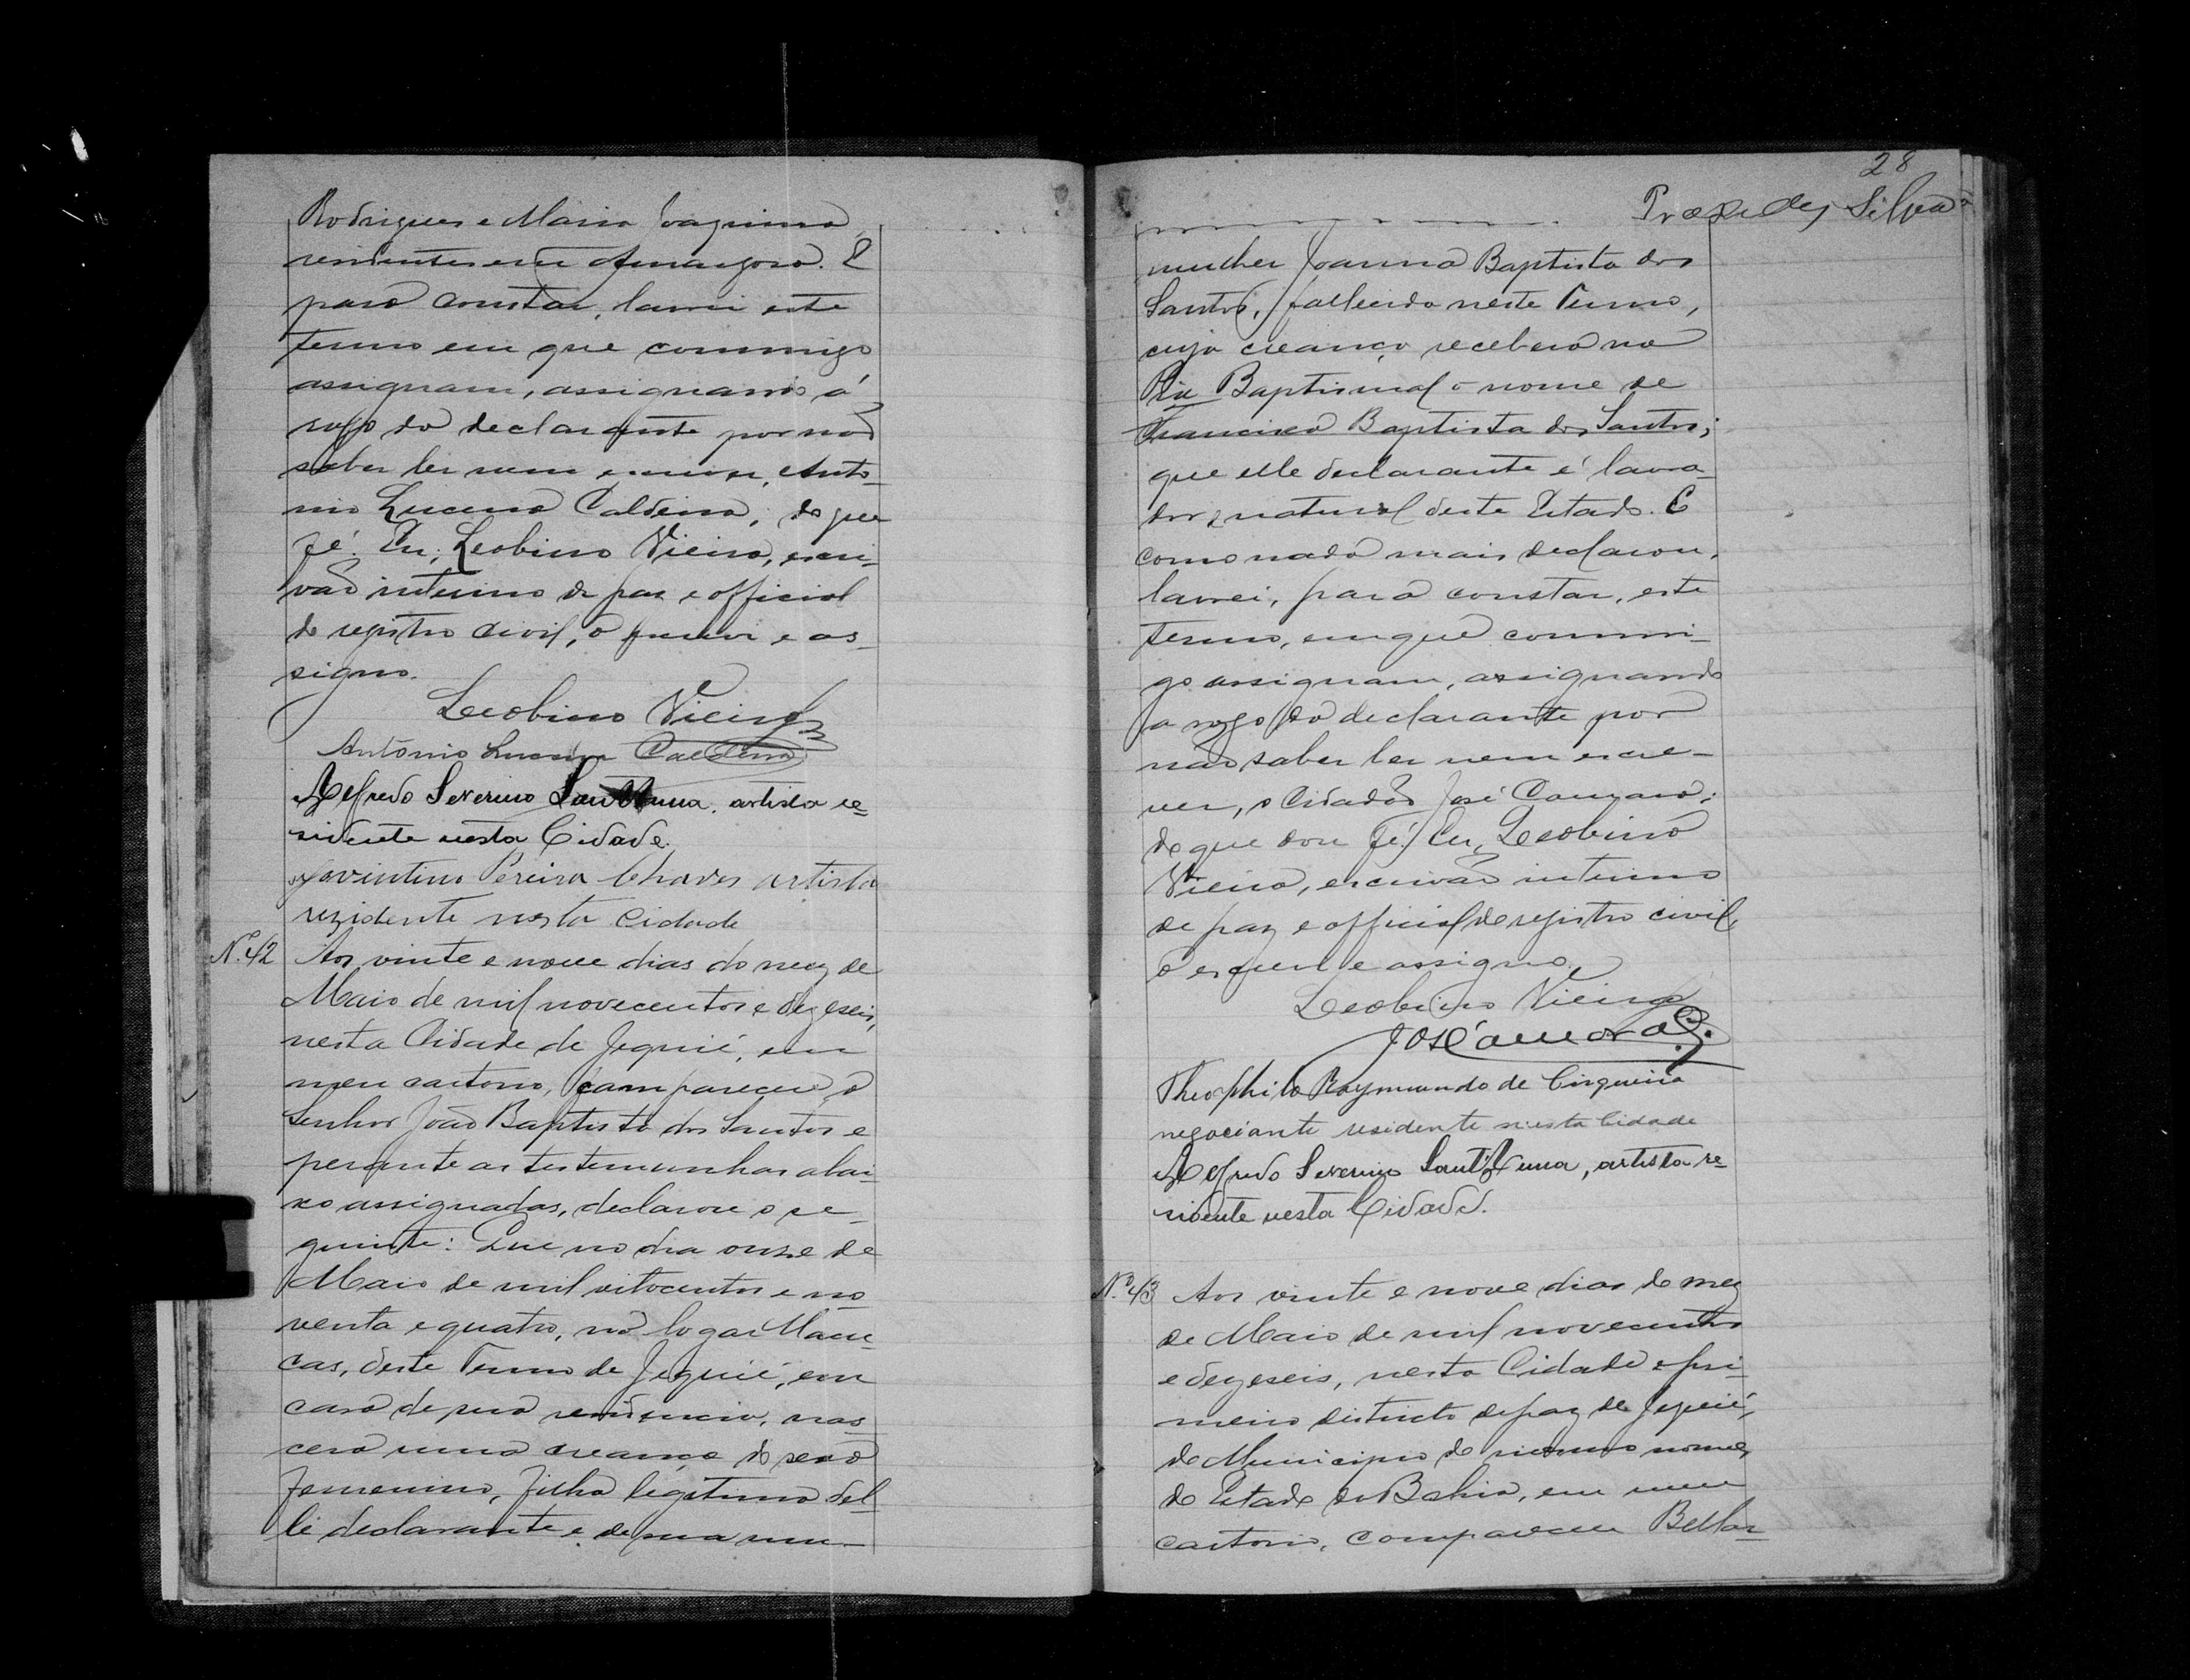 Rodrigues e Maria Joaquina,
residentes em Amargosa. E
para constar, lavrei este
termo em que commigo
assignam, assignando á
rogo do declarante por não
saber ler nem escrever, Anto-
nio Lucena Caldeira; do que
fé. Eu, Leobino Vieira, escri-
vão interino de paz e official
do registro civil, o escrevi e as-
signo.
Leobino Vieira
Antonio Lucena Caldeira
Alfredo Severino Sant'Anna, artista re-
sidente nesta Cidade.
Jovintino Pereira Chaves artista
rezidente nesta Cidade
Nº 42 Aos vinte e nove dias do mez de
Maio de mil novecentos e dezeseis,
nesta Cidade de Jequié, em
meu cartorio, compareceu o
Senhor João Baptista dos Santos e
perante as testemunhas abai-
xo assignadas, declarou o se-
guinte: Que no dia onze de
Maio de mil oitocentos e no
venta e quatro, no logar
deste Termo de Jequié, em
casa de sua residencia, nas
cera uma creança do sexo
femenino, filha legitima del-
le declarante e de sua mu-
28
Praxedes Silva
mulher Joanna Baptista dos
Santos, fallecida neste Termo,
cuja creança recebera na
Pia Baptismal o nome de
Francisca Baptista dos Santos;
que elle declarante é lavra-
dor, natural deste Estado. E
como nada mais declarou,
lavrei, para constar, este
termo, em que commi-
go assignam, assignando
a rogo do declarante por
não saber ler nem escre-
ver, o Cidadão José
do que dou fé. Eu, Leobino
Vieira, escrivão interino
de paz e official do registro civil,
o escrevi e assigno.
Leobino Vieira
Theophilo Raymundo de Cirqueira
negociante residente nesta Cidade
Alfredo Severino Sant'Anna, artista re-
sidente nesta Cidade.
Nº 43 Aos vinte e nove dias do mez
de Maio de mil novecentos
e dezeseis, nesta Cidade e pri-
meiro districto de paz de Jequié,
do Municipio do mesmo nome,
do Estado da Bahia, em meu
cartorio, compareceu Bellar-